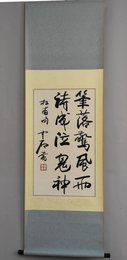 筆落驚風雨
詩成泣鬼神
杜甫句